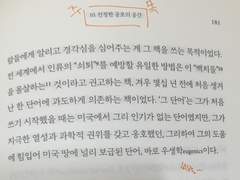 10. 진정한 공포의 공간
181
람들에게 알리고 경각심을 심어주는 게 그 책을 쓰는 목적이었다.
전 세계에서 인류의 “쇠퇴”를 예방할 유일한 방법은 이 “백치들”
을 몰살하는 것이라고 권고하는 책, 겨우 몇십 년 전에 처음 생겨
난 한 단어에 과도하게 의존하는 책이었다. ‘그 단어’는 그가 처음
쓰기 시작했을 때는 미국에서 그리 인기가 없는 단어였지만, 그가
지극한 열성과 과학적 권위를 갖고 옹호했던, 그리하여 그의 도움
에 힘입어 미국 땅에 널리 보급된 단어, 바로 우생학eugenics이다.